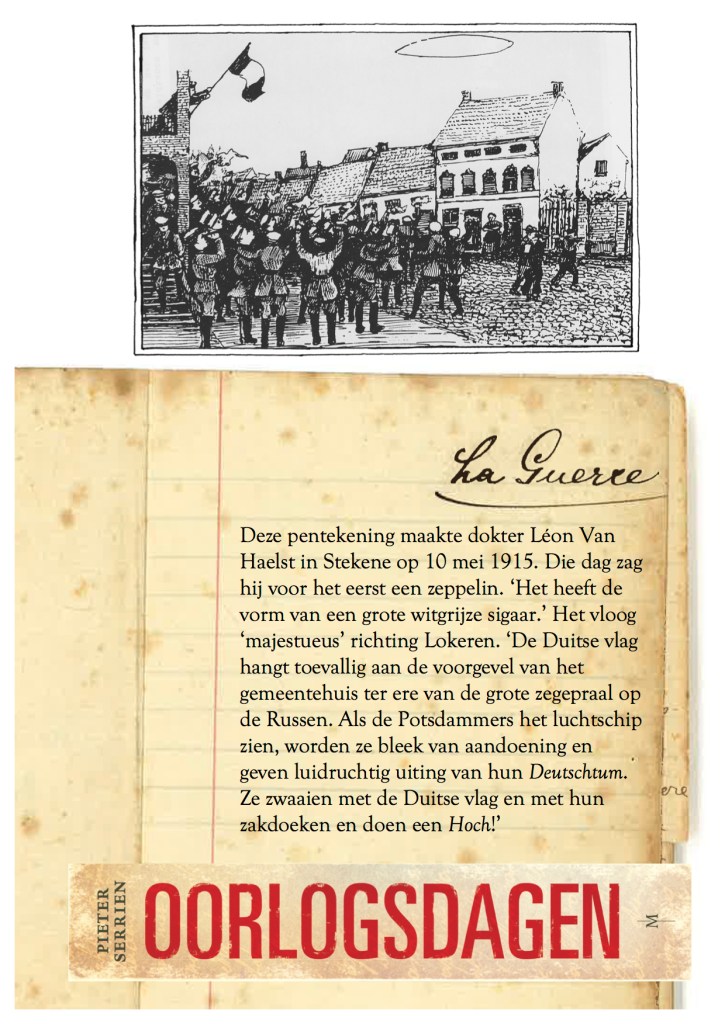 La Guerre
Deze pentekening maakte dokter Léon Van
Haelst in Stekene op 10 mei 1915. Die dag zag
hij voor het eerst een zeppelin. ‘Het heeft de
vorm van een grote witgrijze sigaar.’ Het vloog
‘majestueus’ richting Lokeren. ‘De Duitse vlag
hangt toevallig aan de voorgevel van het
gemeentehuis ter ere van de grote zegepraal op
de Russen. Als de Potsdammers het luchtschip
zien, worden ze bleek van aandoening en
geven luidruchtig uiting van hun Deutschtum.
Ze zwaaien met de Duitse vlag en met hun
zakdoeken en doen een Hoch!’
PIETER
SERRIEN
OORLOGSDAGEN
M